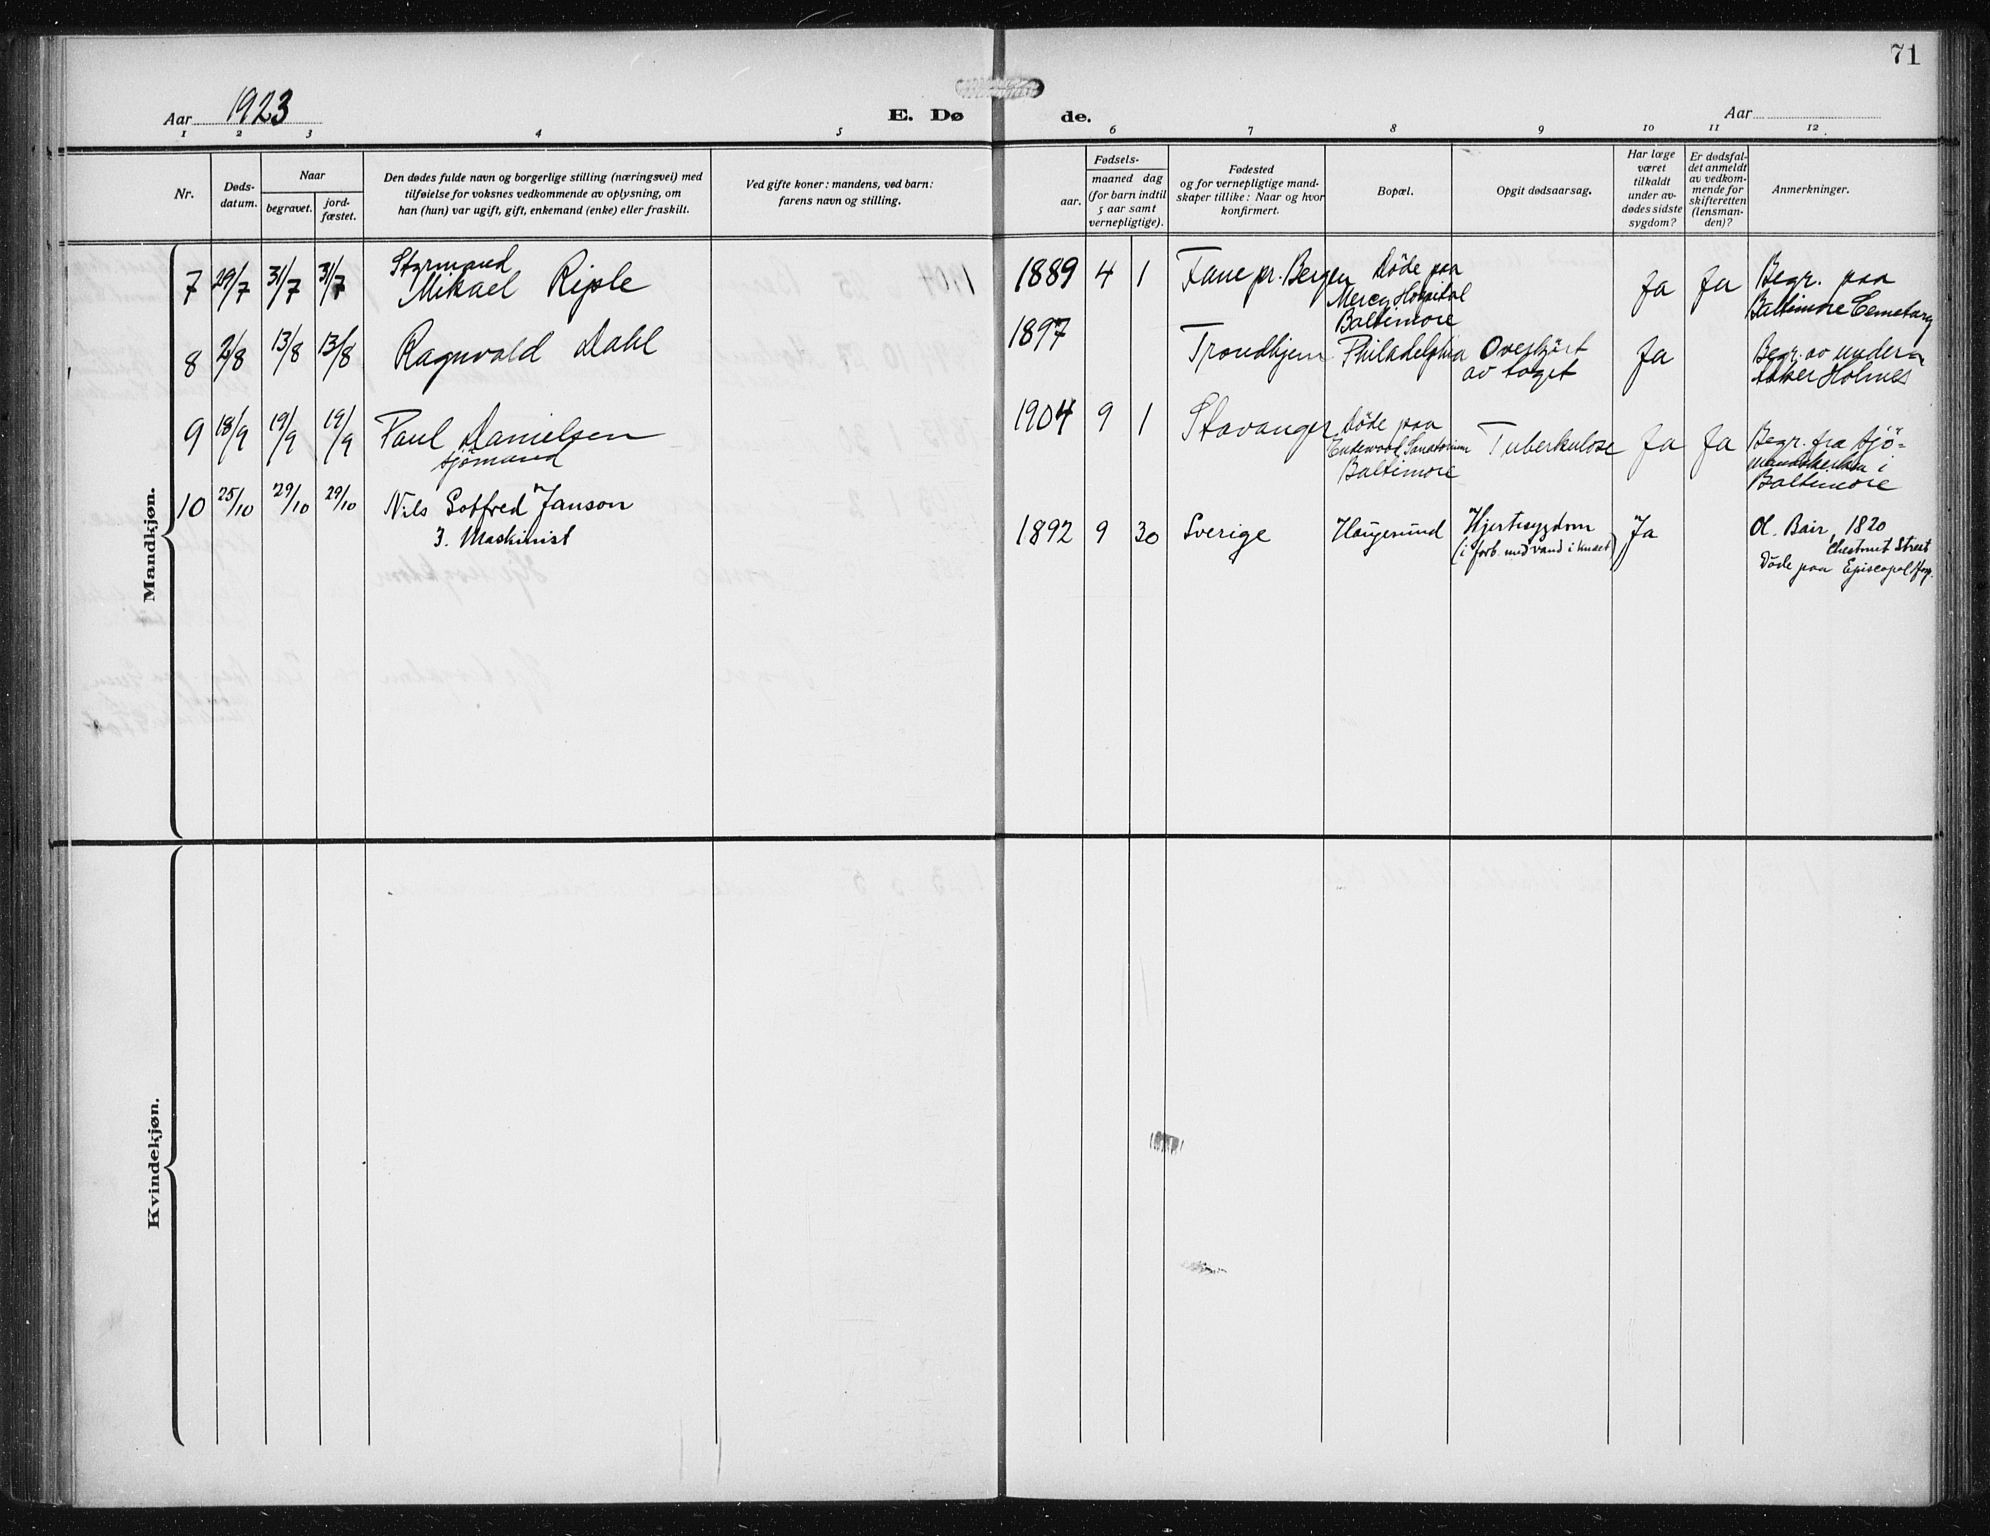 71
Aar 1923
E. Dø
de.
Aar
1 2 3 4 5
6 7 8 9 10 11 12
Nr.
Døds-
datum.
Naar
begravet.
jord-
fæstet.
Den dødes fulde navn og borgerlige stilling (næringsvei) med
tilføielse for voksnes vedkommende av oplysning, om
han (hun) var ugift, gift, enkemand (enke) eller fraskilt.
Ved gifte koner: mandens, ved barn:
farens navn og stilling.
Fødsels-
aar.
maaned dag
(for barn indtil
5 aar samt
vernepligtige).
Fødested
og for vernepligtige mand-
skaper tillike: Naar og hvor
konfirmert.
Bopæl.
Opgit dødsaarsag.
Har læge
været
tilkaldt
under av-
dødes sidste
sygdom?
Er dødsfal-
det anmeldt
av vedkom-
mende for
skifteretten
(lensman-
den)?
Anmerkninger.
Mandkjøn.
7 29/7 31/7 31/7
Styrmand
Mikael Riple
1889 4 1
Fane pr. Bergen
Døde paa
Mercy Hospital
Baltimore
Ja Ja
Begr. paa
Baltimore Cemetary
8 2/8 13/8 13/8
Ragnvald Dahl
1897
Trondhjem
Philadelphia
Overkjört
av toget
Ja
Begr. av under-
taker Holmes
9 18/9 19/9 19/9
Paul Danielsen
sjømand
1904 9 1
Stavanger
Døde paa
Sanatorium
Baltimore
Tuberkulose
Ja Ja
Begr. fra Sjö-
mandskirken i
Baltimore
10 25/10 29/10 29/10
Nils Gotfred Janson
3. Maskinist
1892 9 30
Sverige
Haugesund
Hjertesygdom
(i forb. med vand i knæet)
Ja
Ol. Bair, 1820
Chestnut Street
Døde paa Episcopal Hosp.
Kvindekjøn.